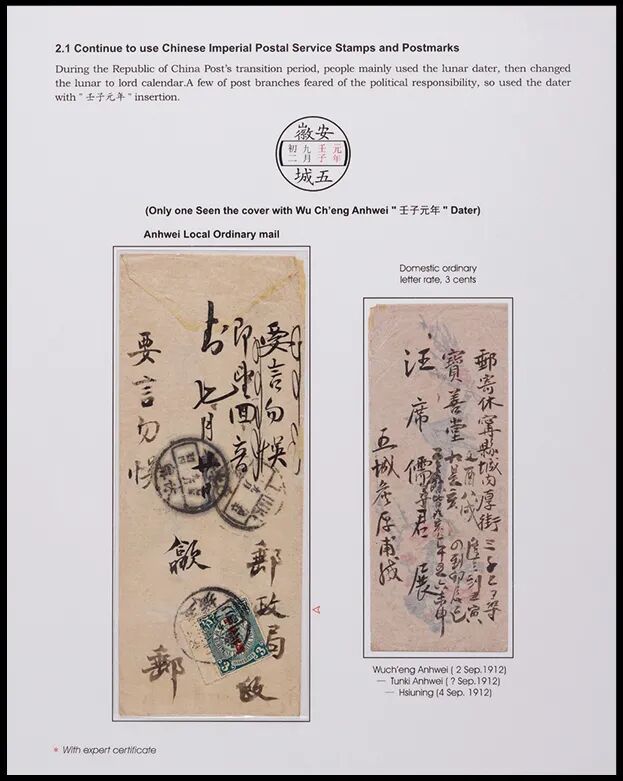 2.1 Continue to use Chinese Imperial Postal Service Stamps and Postmarks
During the Republic of China Post's transition period, people mainly used the lunar dater, then changed
the lunar to lord calendar.A few of post branches feared of the political responsibility, so used the dater
with " 壬子元年 " insertion.
安徽
元年
壬子
九月
初二
五城
(Only one Seen the cover with Wu Ch'eng Anhwei " 壬子元年 " Dater)
Anhwei Local Ordinary mail
Domestic ordinary
letter rate, 3 cents
言勿悞
即望回音
七月
要言勿悞
郵政局
歙
政
郵
郵寄休寧縣城內厚街
寶善堂
汪席儒君展
五城詹厚甫
Wuch'eng Anhwei ( 2 Sep.1912)
— Tunki Anhwei ( ? Sep.1912)
— Hsiuning (4 Sep. 1912)
* With expert certificate